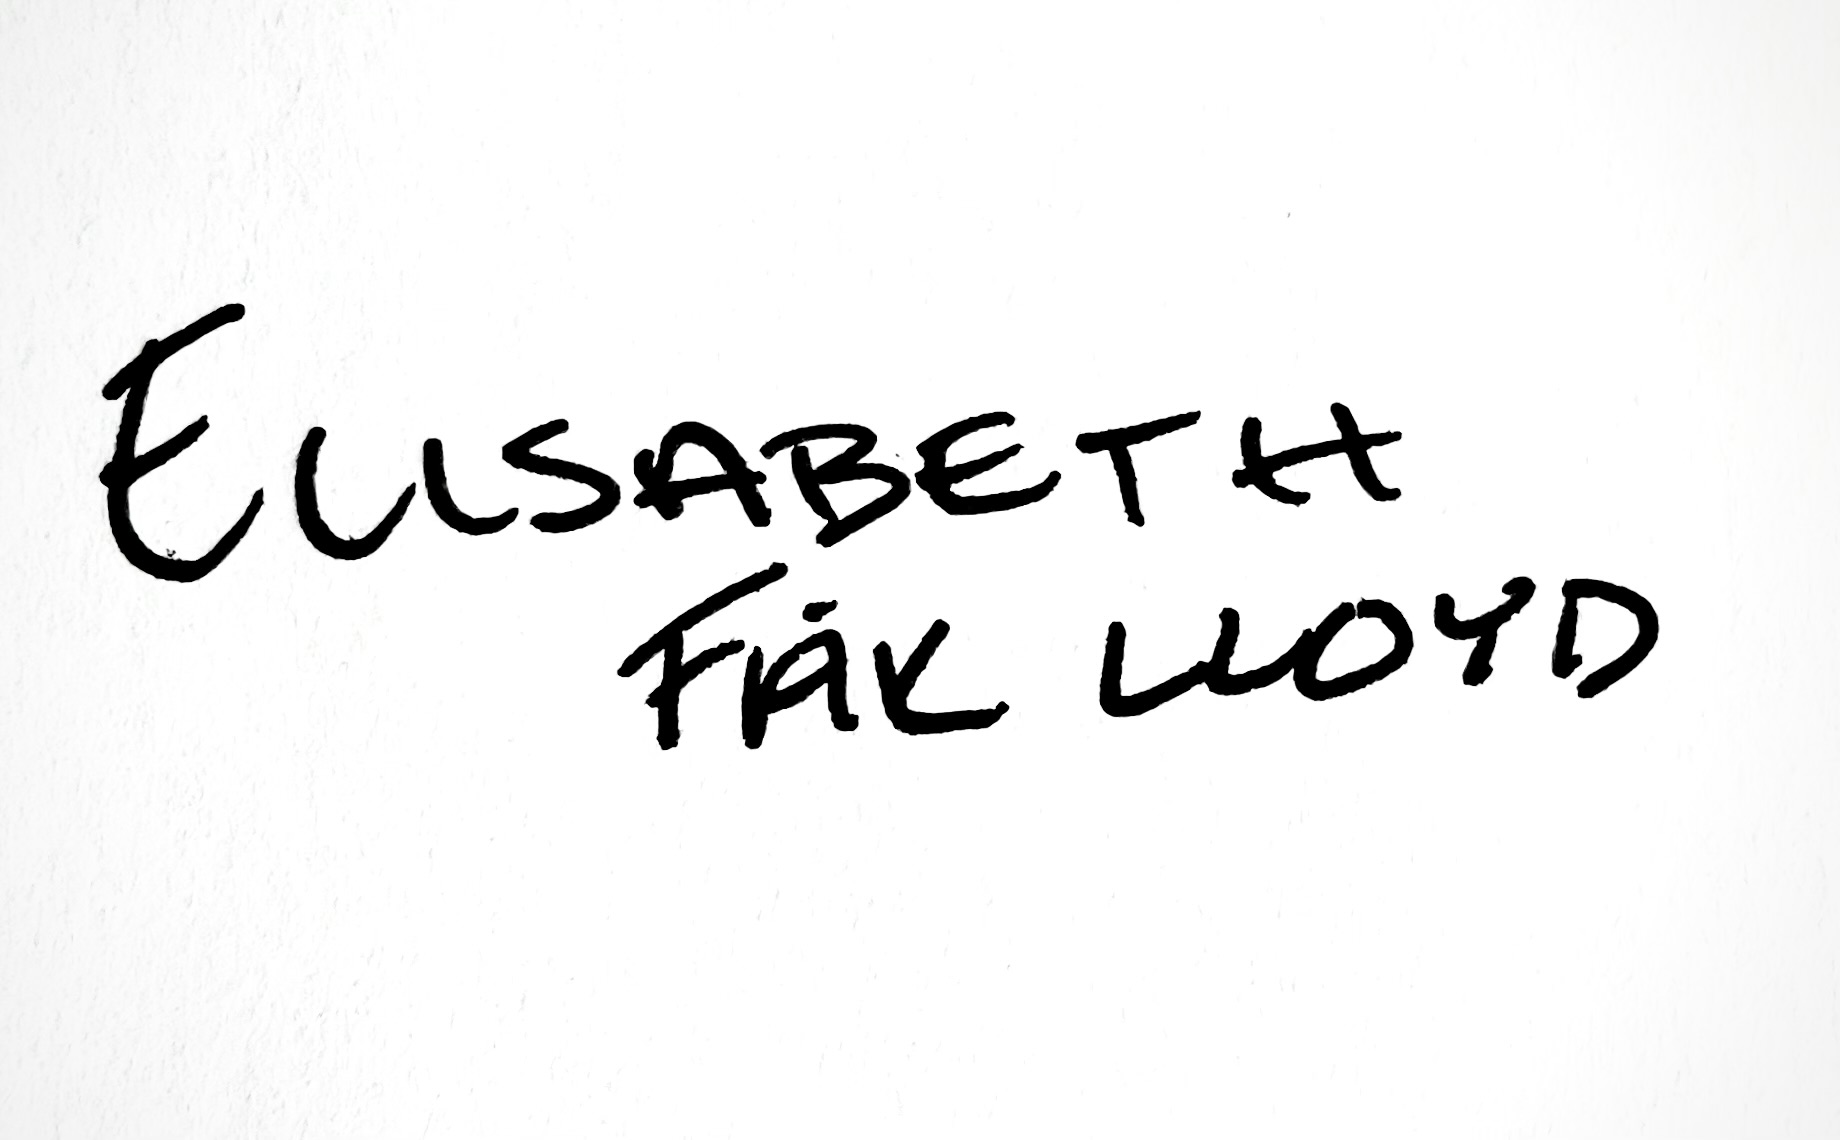 ELISABETH
LLOYD